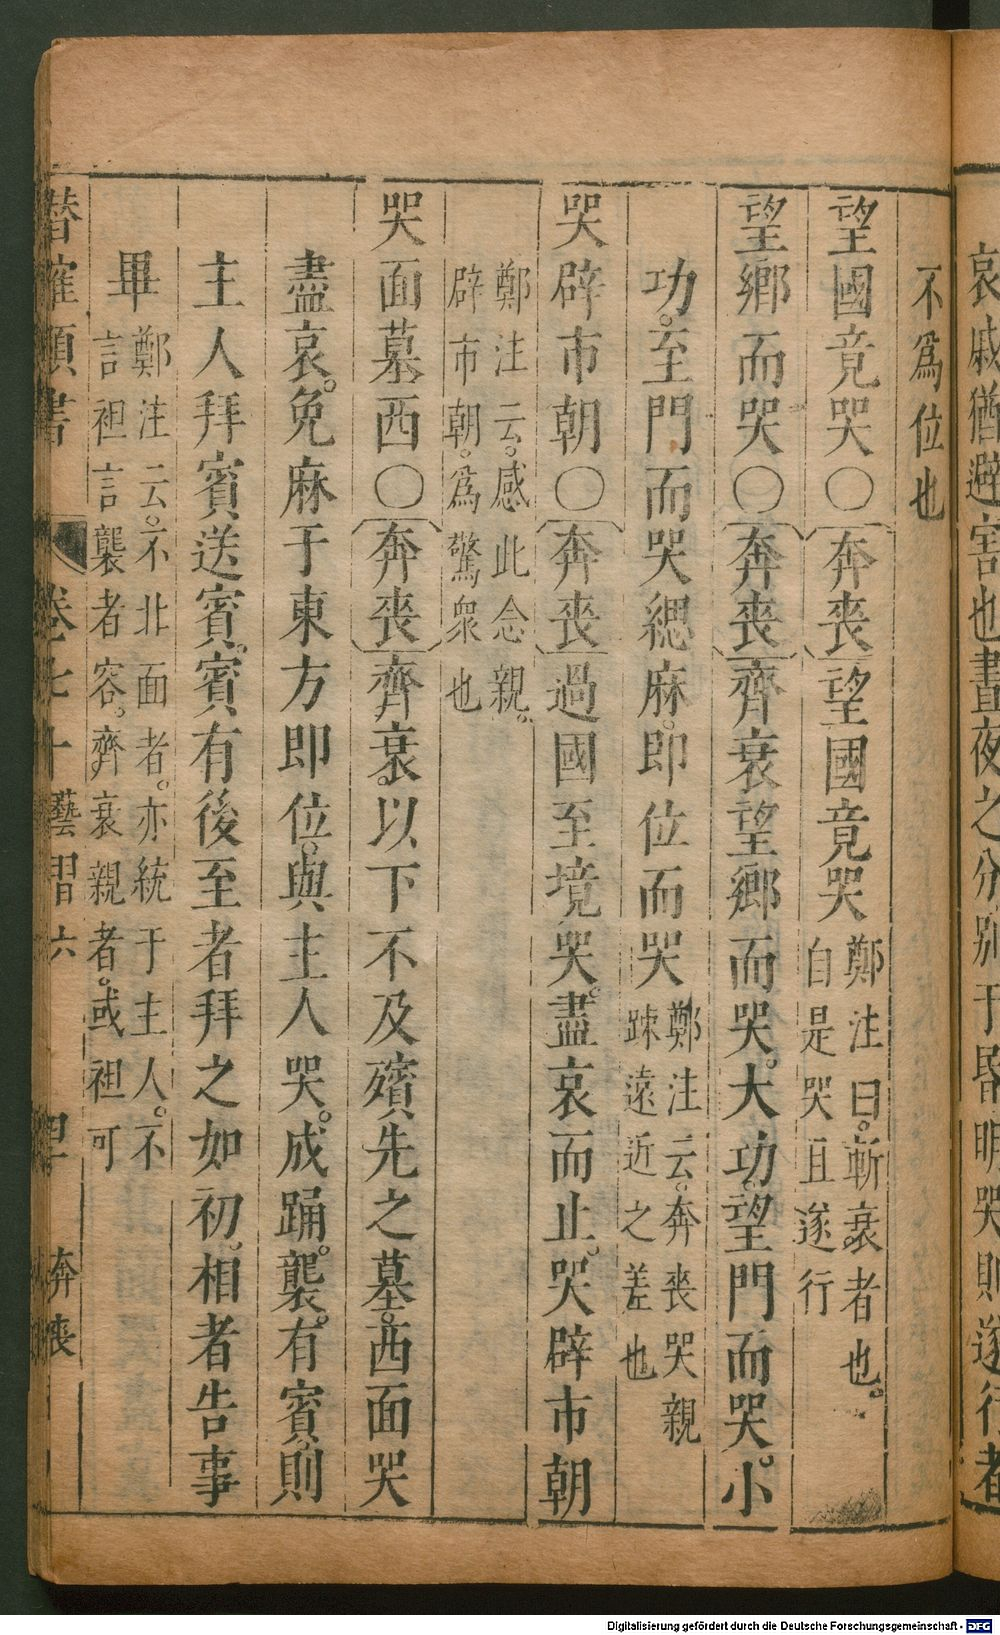 哀戚猶避害也晝夜之分別于昏明哭則遂行者
不爲位也
望國竟哭〇奔喪望國竟哭鄭注曰斬衰者也。自是哭且遂行
望鄉而哭〇奔喪齊衰望鄉而哭。大功。望門而哭。小
功。至門而哭緦麻。即位而哭鄭注云。奔喪哭親踈遠近之差也
哭辟市朝〇奔喪過國至境哭。盡哀而止。哭辟市朝
鄭注云。感此念親。辟市朝。爲驚衆也
哭面墓西〇奔喪齊衰。以下不及殯先之墓。西面哭
盡哀。免麻于東方即位。與主人哭。成踊。襲。有賓則
主人拜賓送賓。賓有後至者拜之如初。相者告事
畢鄭注云。不北面者。亦統于主人。不言袒言襲者容。齊衰親者。或袒可
潛確類書 卷七十 藝習六 奔喪
Digitalisierung gefördert durch die Deutsche Forschungsgemeinschaft - DFG